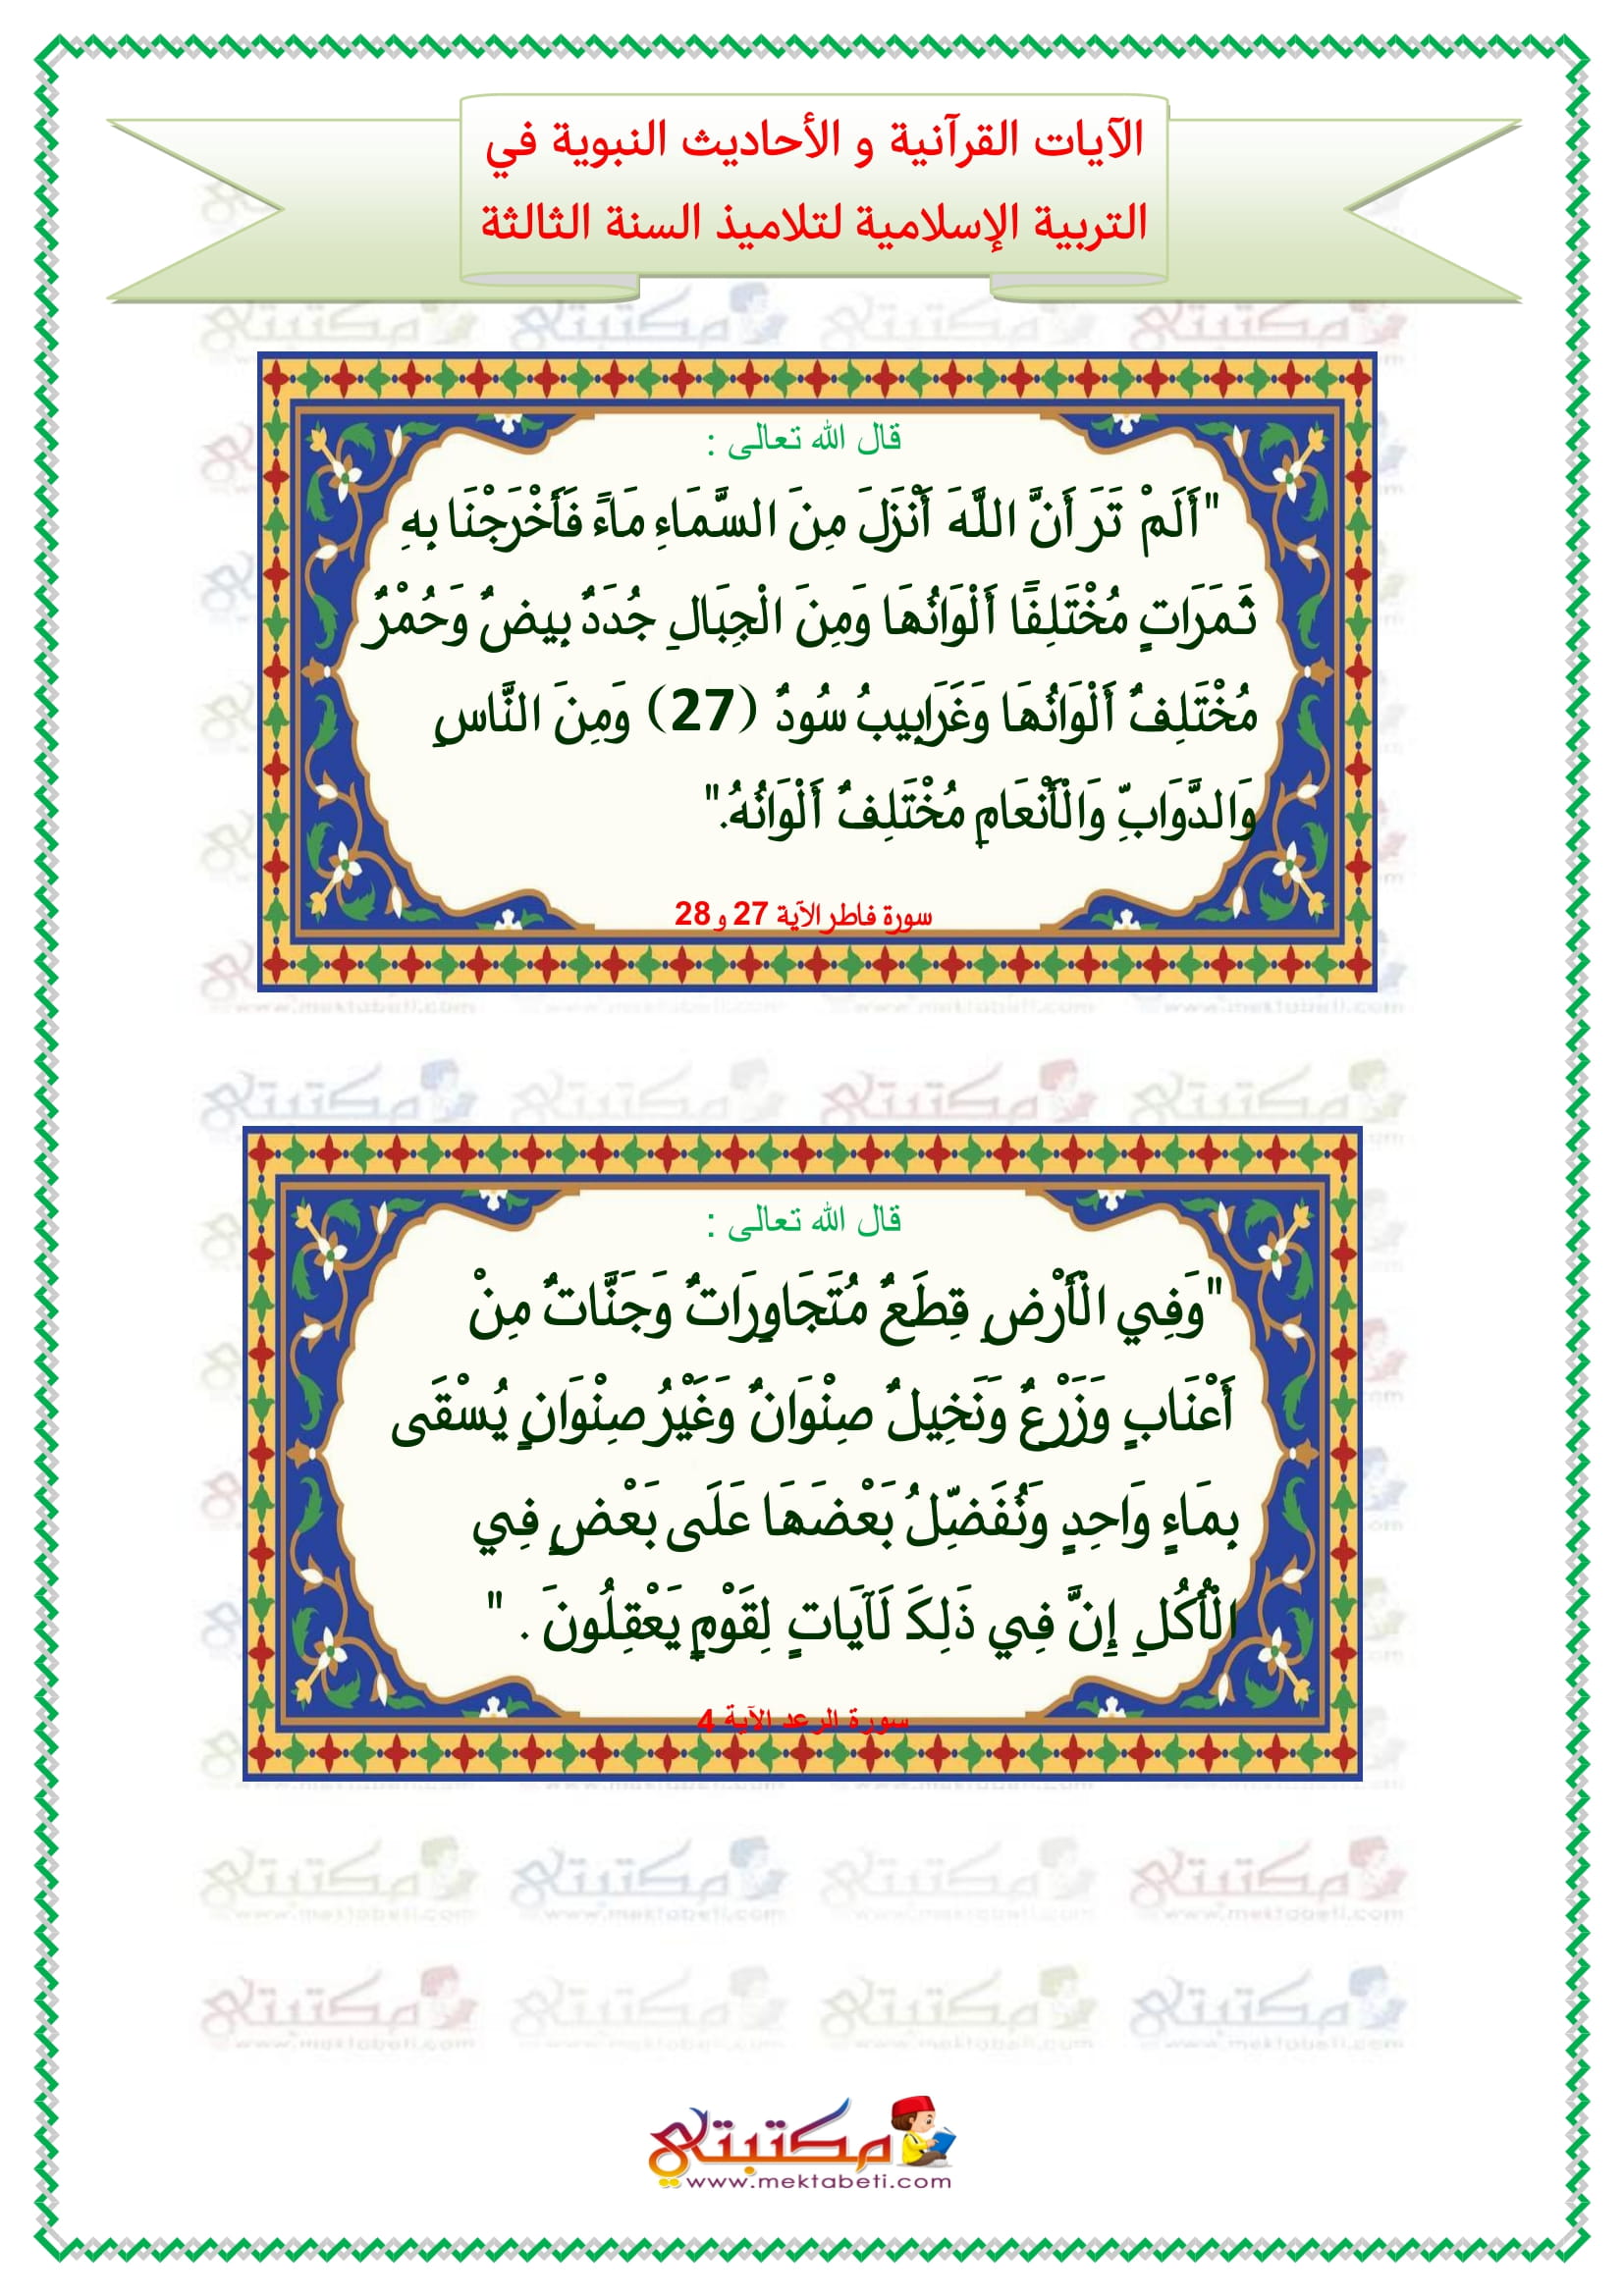 الآيات القرآنية و الأحاديث النبوية في
التربية الإسلامية لتلاميذ السنة الثالثة
قال الله تعالى :
"أَلَمْ تَرَ أَنَّ اللَّهَ أَنْزَلَ مِنَ السَّمَاءِ مَاءً فَأَخْرَجْنَا بِهِ
ثَمَرَاتٍ مُخْتَلِفًا أَلْوَانُهَا وَمِنَ الْجِبَالِ جُدَدٌ بِيضٌ وَحُمْرٌ
مُخْتَلِفٌ أَلْوَانُهَا وَغَرَابِيبُ سُودٌ (27) وَمِنَ النَّاسِ
وَالدَّوَابِّ وَالْأَنْعَامِ مُخْتَلِفٌ أَلْوَانُهُ."
سورة فاطر الآية 27 و 28
قال الله تعالى :
"وَفِي الْأَرْضِ قِطَعٌ مُتَجَاوِرَاتٌ وَجَنَّاتٌ مِنْ
أَعْنَابٍ وَزَرْعٌ وَنَخِيلٌ صِنْوَانٌ وَغَيْرُ صِنْوَانٍ يُسْقَى
بِمَاءٍ وَاحِدٍ وَنُفَضِّلُ بَعْضَهَا عَلَى بَعْضٍ فِي
الْأُكُلِ إِنَّ فِي ذَلِكَ لَآيَاتٍ لِقَوْمٍ يَعْقِلُونَ . "
سورة الرعد الآية 4
مكتبتي
www.mektabeti.com